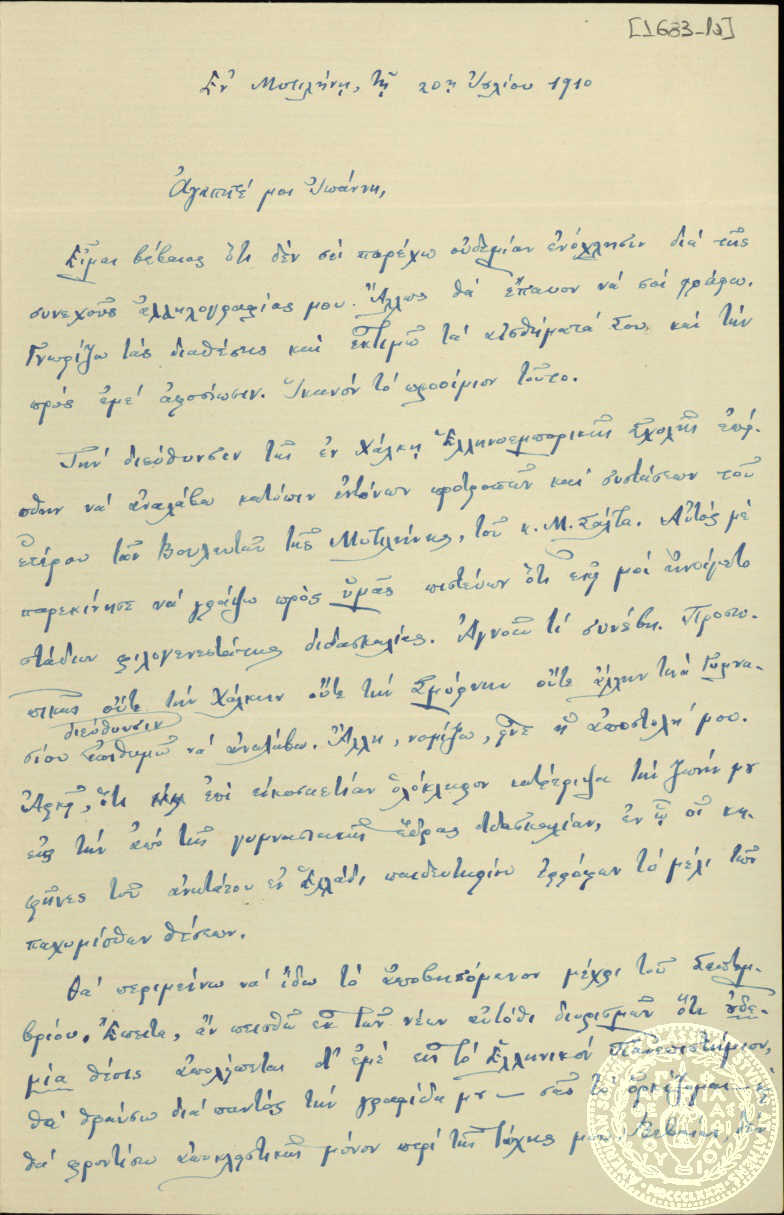 [1683_10]
Ἐν Μυτιλήνῃ, τῇ 20ῃ Ἰουλίου 1910
Ἀγαπητέ μοι Ἰωάννη,
Εἶμαι βέβαιος ὅτι δὲν σοὶ παρέχω οὐδεμίαν ἐνόχλησιν διὰ τῆς
συνεχοῦς ἀλληλογραφίας μου. Ἄλλως θὰ ἔπαυον νὰ σοὶ γράφω.
Γνωρίζω τὰς διαθέσεις καὶ ἐκτιμῶ τὰ αἰσθήματά Σου καὶ τὴν
πρὸς ἐμὲ ἀφοσίωσιν. Ἱκανὸν τὸ προοίμιον τοῦτο.
Τὴν διεύθυνσιν τῆς ἐν Χάλκῃ Ἑλληνοεμπορικῆς Σχολῆς ἐπρ.
πὴν νὰ ἀναλάβω κατόπιν ἐντόνων προτροπῶν καὶ συστάσεων τοῦ
ἑτέρου τῶν Βουλευτῶν τῆς Μυτιλήνης, τοῦ κ. Μ. Σάλτα. Αὐτὸς μὲ
παρεκίνησε νὰ γράψω πρὸς ὑμᾶς πιστεύων ὅτι ἐκεῖ μοὶ ἠνοίγετο
στάδιον διδασκαλίας. Ἀγνοῶ τί συνέβη. Προσω-
πικῶς οὔτε τὴν Χάλκην οὔτε τὴν Σμύρνην οὔτε ἄλλην τινὰ Γυμνα-
διεύθυνσιν
σίου ἐπιθυμῶ νὰ ἀναλάβω. Ἄλλη, νομίζω, εἶνε ἡ ἀποστολή μου.
Ἀρκεῖ, ὅτι ἐπὶ εἰκοσαετίαν ὁλόκληρον κατέτριψα τὴν ζωήν μου
εἰς τὴν ἀπὸ τῆς γυμνασιακῆς ἕδρας διδασκαλίαν, ἐν ᾧ οἱ κη-
φῆνες τοῦ ἀνωτάτου ἐν Ἑλλάδι παιδευτηρίου ἐρρόφων τὸ μέλι τῶν
παχυμίσθων θέσεων.
Θὰ περιμείνω νὰ ἴδω τὸ ἀποβησόμενον μέχρι τοῦ Σεπτεμ-
βρίου. Ἔπειτα, ἂν πεισθῶ ἐκ τῶν νέων αὐτόθι διορισμῶν ὅτι οὐδε-
μία θέσις ἀπολείπεται δι' ἐμὲ εἰς τὸ Ἑλληνικὸν Πανεπιστήμιον,
θὰ θραύσω διὰ παντὸς τὴν γραφίδα μου — σᾶς τὸ ὁρκίζομαι — καὶ
θὰ φροντίσω ἀποκλειστικῶς μόνον περὶ τῆς τύχης μου. Βεβαίως, δὲν